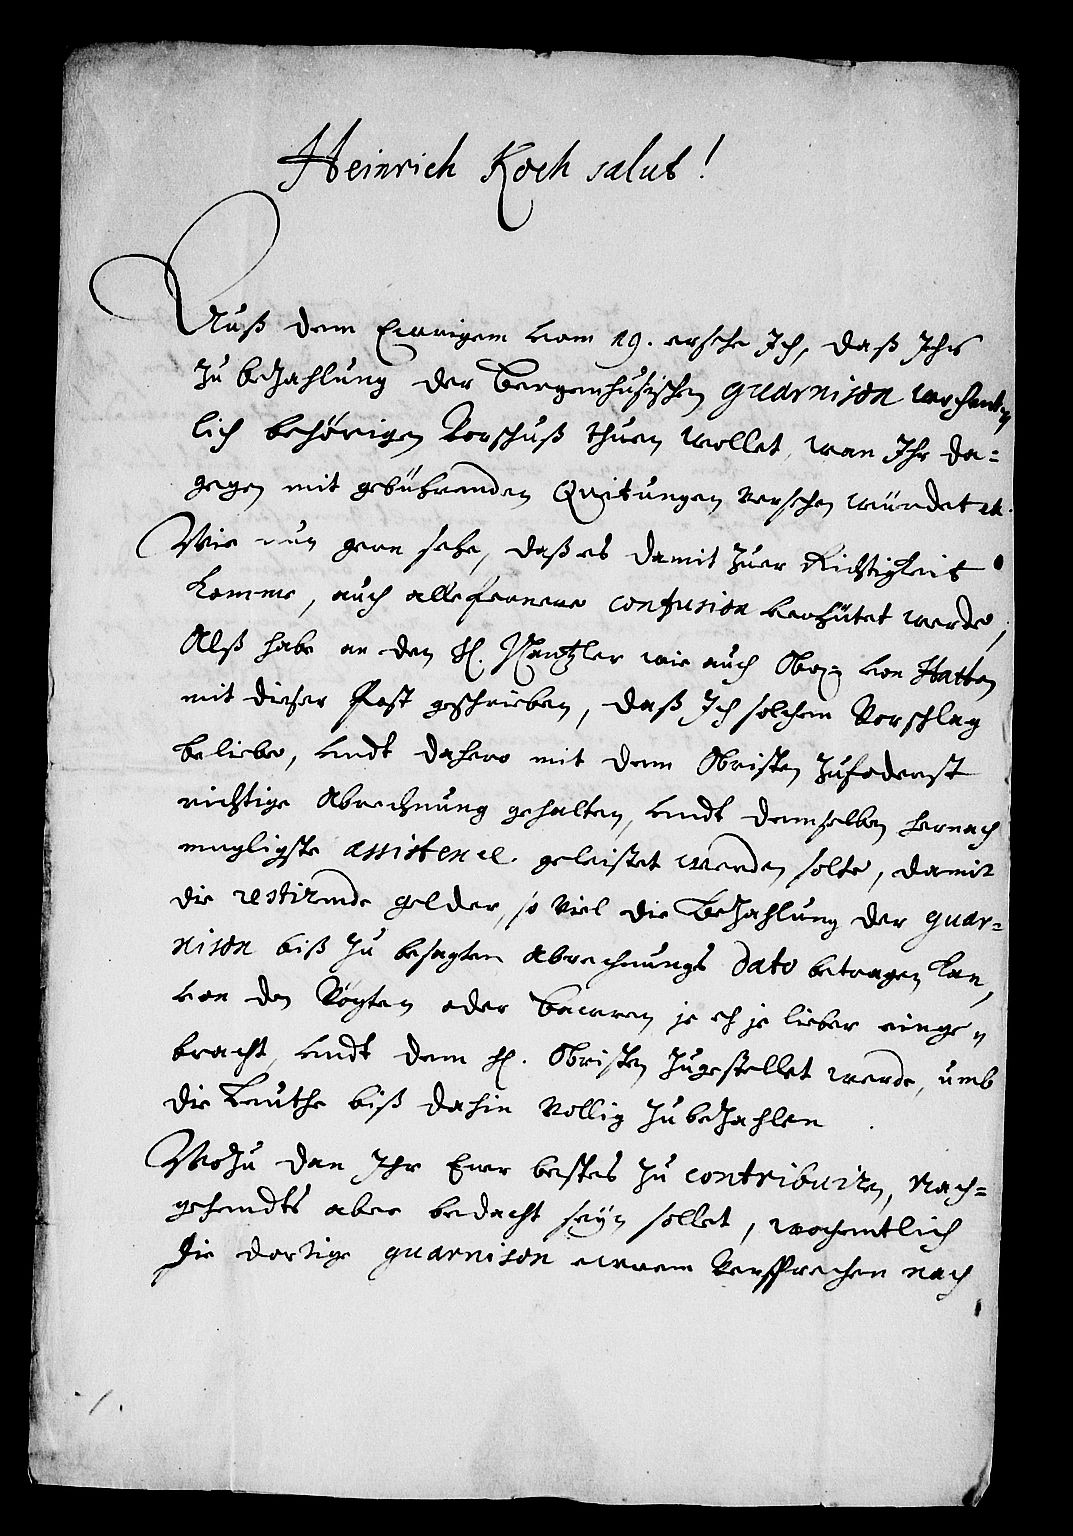 Heinrich Koch salut!
Auß dem Ewrigem vom 19. ersehe Ich, daß Ihr
zu bezahlung der Bergenhusischen guarnison wochent-
lich behörigen Vorschuß thuen wollet, wan Ihr da=
gegen mit gebührenden Quitungen versehen würdet etc.
Wie nun gern sehe, daß es damit zuer Richtigkeit
komme, auch alle fernere confusion verhütet werde,
Alß habe an den H. Cantzler wie auch Obr: von Hatten
mit dieser Post geschrieben, daß Ich solchem Vorschlag
beliebe, undt dahero mit dem Obristen zufoderst
richtige Abrechnung gehalten, undt demselben hernach
mugligste assistence geleistet werden solte, damit
die restirende gelder, so viel die Bezahlung der guar=
nison biß zu besagten Abrechnungs dato betragen kan,
von den Vögten oder Bawren je eh je lieber einge=
bracht, undt dem H. Obristen zugestellet werde, umb
die Leuthe biß dahin vollig zu bezahlen
Wozu dan Ihr Ewer bestes zu contribuiren, nach=
gehendts aber bedacht seyn sollet, wochentlich
die dortige guarnison ewrem Versprechen nach